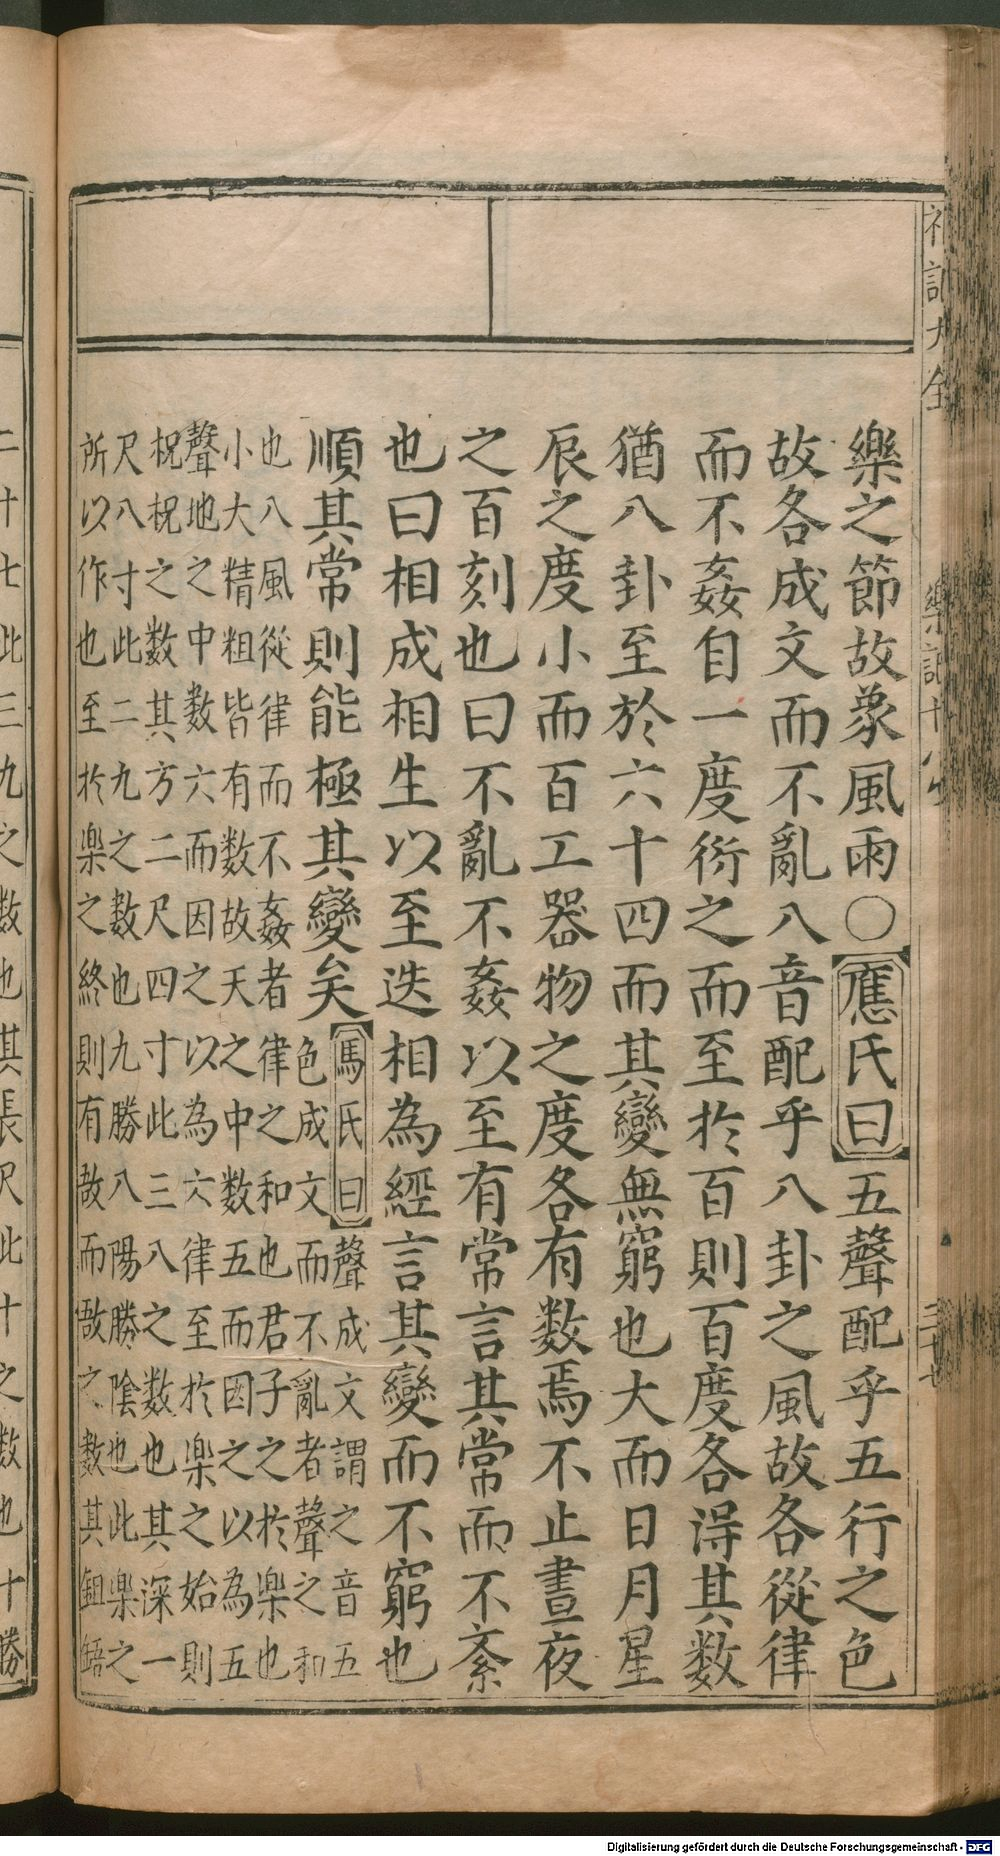 樂之節故象風雨〇應氏曰五聲配乎五行之色
故各成文而不亂八音配乎八卦之風故各從律
而不姦自一度衍之而至於百則百度各得其数
猶八卦至於六十四而其變無窮也大而日月星
辰之度小而百工器物之度各有数焉不止晝夜
之百刻也曰不亂不姦以至有常言其常而不紊
也曰相成相生以至迭相為經言其變而不窮也
順其常則能極其變矣馬氏曰聲成文謂之音五
色成文而不亂者聲之和
也八風從律而不姦者律之和也君子之於楽也
小大精粗皆有数故天之中数五而因之以為五
聲地之中数六而因之以為六律至於楽之始則
柷柷之数其方二尺四寸此三八之数也其深一
尺八寸此二九之数也九勝八陽勝陰也此楽之
所以作也至於楽之終則有敔而敔之数其鉏鋙
二十七此三九之数也其長尺此十之数也十勝
樂記十八
Digitalisierung gefördert durch die Deutsche Forschungsgemeinschaft - DFG